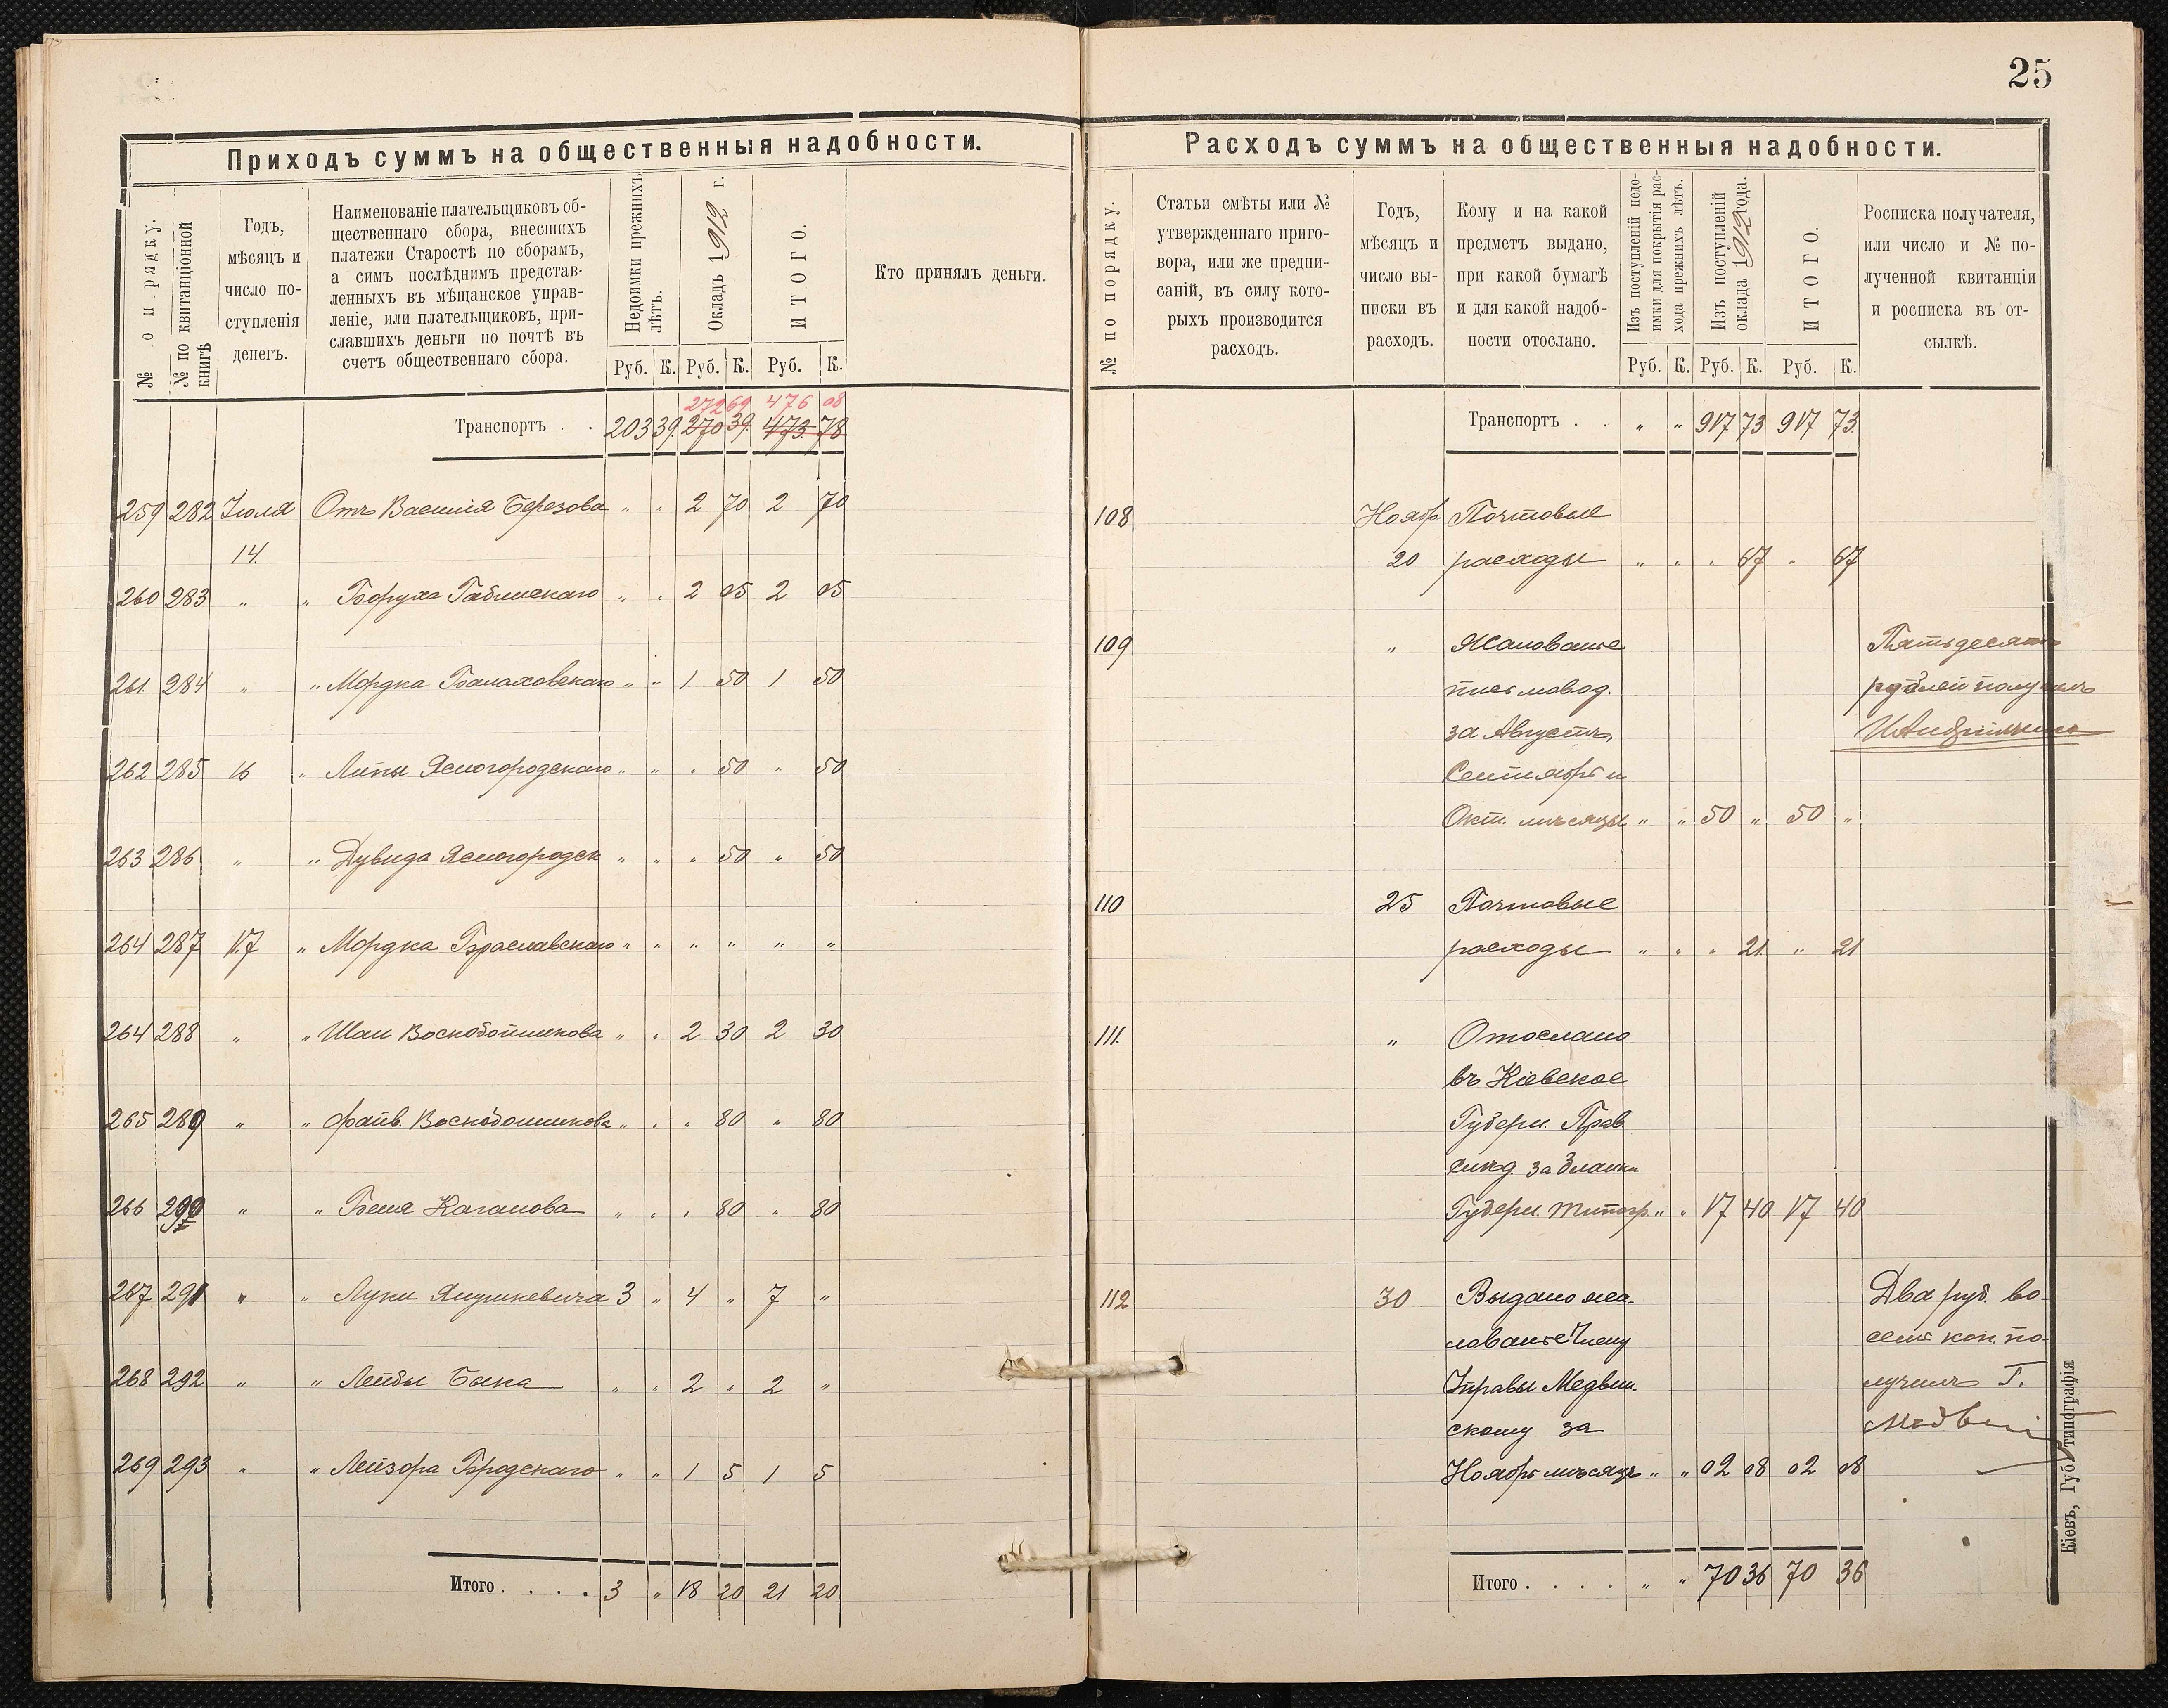 25
Приходъ суммъ на общественныя надобности.
№ по порядку.
№ по квитанціонной книгѣ
Годъ,
мѣсяцъ и
число по-
ступленія
денегъ.
Наименованіе плательщиковъ об-
щественнаго сбора, внесшихъ
платежи Старостѣ по сборамъ,
а симъ послѣднимъ представ-
ленныхъ въ мѣщанское управ-
леніе, или плательщиковъ, при-
славшихъ деньги по почтѣ въ
счетъ общественнаго сбора.
Недоимки прежнихъ
лѣтъ.
Окладъ 1912 г.
ИТОГО.
Кто принялъ деньги.
Руб. К. Руб. К. Руб. К.
272 69 476 08
Транспортъ . . 203 39 270 39 473 78
259 282 Іюля Отъ Василія Березова „ „ 2 70 2 70
14.
260 283 „ „ Боруха Габинскаго „ „ 2 05 2 05
261. 284 „ „ Мордка Балаховскаго „ „ 1 50 1 50
262 285 16 „ Липы Ясногородскаго „ „ „ 50 „ 50
263 286 „ „ Дувида Ясногородск „ „ „ 50 „ 50
264 287 17 „ Мордка Браславскаго „ „ „ „ „ „
264 288 „ „ Шаи Воскобойникова „ „ 2 30 2 30
265 289 „ „ Файв. Воскобойникова „ „ „ 80 „ 80
266 290 „ „ Беня Каганова „ „ „ 80 „ 80
267 291 „ „ Луки Янушкевича 3 „ 4 „ 7 „
268 292 „ „ Лейбы Быка „ „ 2 „ 2 „
269 293 „ „ Лейзора Бродскаго „ „ 1 5 1 5
Итого . . . . 3 „ 18 20 21 20
Расходъ суммъ на общественныя надобности.
№ по порядку.
Статьи смѣты или №
утвержденнаго приго-
вора, или же предпи-
саній, въ силу кото-
рыхъ производится
расходъ.
Годъ,
мѣсяцъ и
число вы-
писки въ
расходъ.
Кому и на какой
предметъ выдано,
при какой бумагѣ
и для какой надоб-
ности отослано.
Изъ поступленій недо-
имки для покрытія рас-
хода прежнихъ лѣтъ.
Изъ поступленій
оклада 1912 года.
ИТОГО.
Росписка получателя,
или число и № по-
лученной квитанціи
и росписка въ от-
сылкѣ.
Руб. К. Руб. К. Руб. К.
Транспортъ . . „ „ 917 73 917 73
108 Нояб Почтовые
20 расходы „ „ „ 67 „ 67
109 „ Жалованье Пятьдесятъ
письмовод. рублей получилъ
за Августъ,
Сентябрь и
Окт. мѣсяцы „ „ 50 „ 50 „
110 25 Почтовые
расходы „ „ „ 21 „ 21
111. „ Отослано
въ Кіевское
Губерн. Прав
слѣд. за бланки
Губерн. типогр. „ „ 17 40 17 40
112 30 Выдано жа- Два руб. во-
лованье Члену семь коп. по-
Управы Медвин. лучилъ Г.
скому за Медвин
Ноябрь мѣсяцъ „ „ 02 08 02 08
Итого . . . . „ „ 70 36 70 36
Кіевъ, Губ. типографія